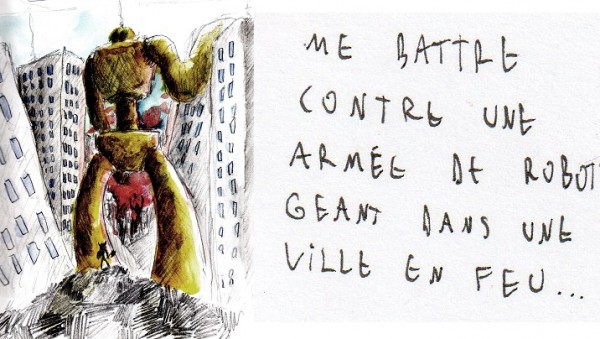 ME BATTRE
CONTRE UNE
ARMÉE DE ROBOT
GEANT DANS UNE
VILLE EN FEU...